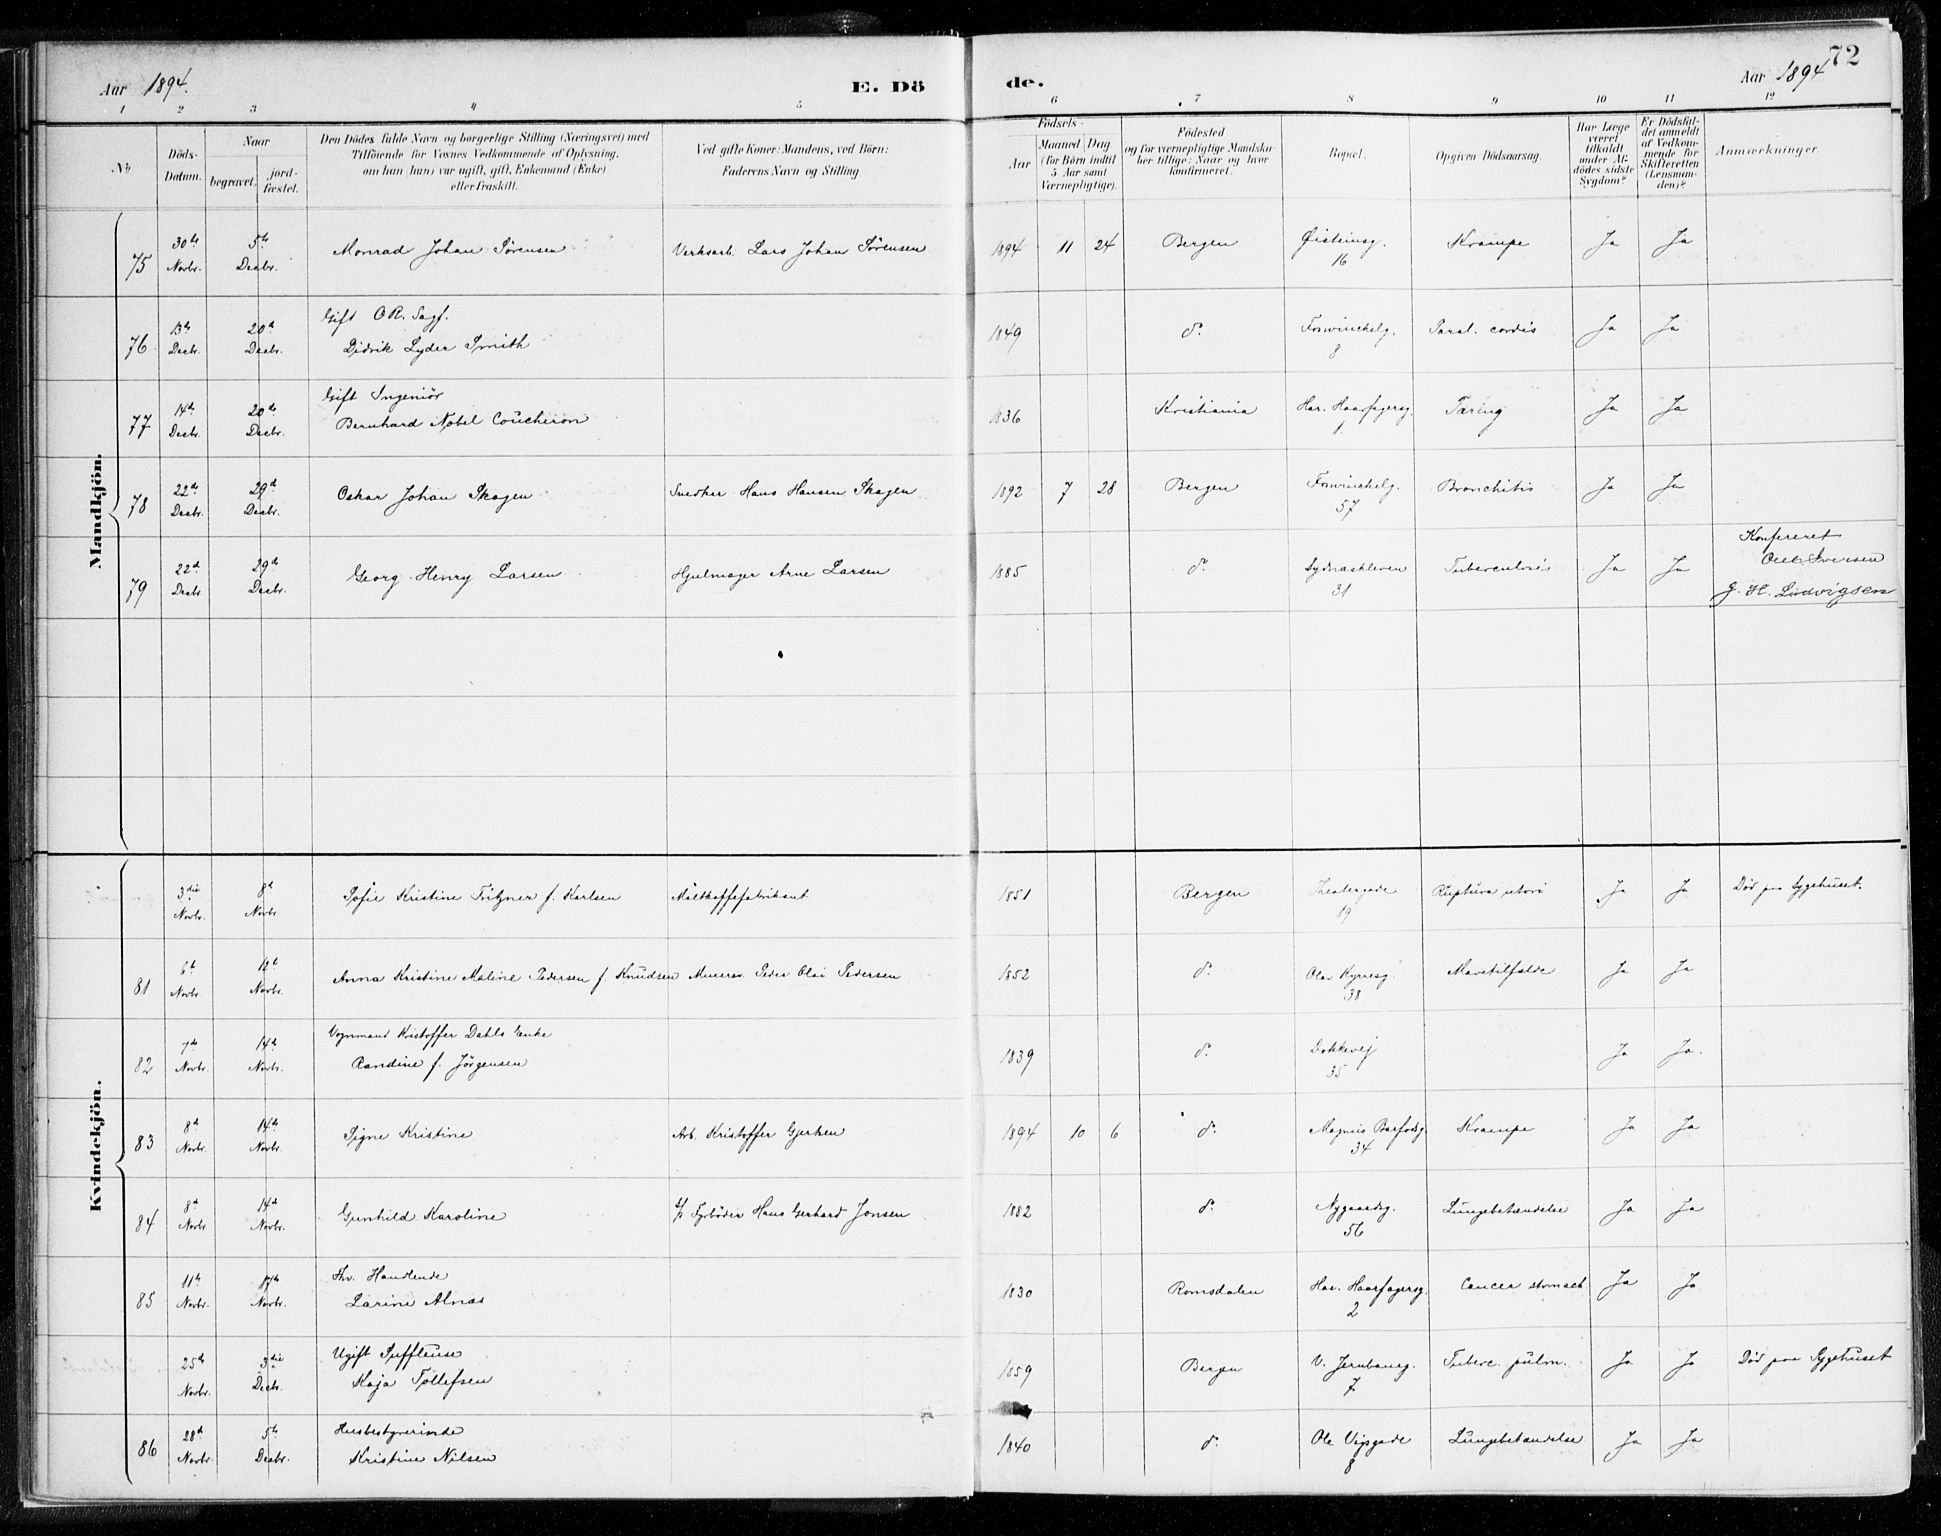 Aar 1894. E. Dö
de. Aar 1894 72
1 2 3 4 5 6 7 8 9 10 11 12
No
Döds-Datum.
Naar
begravet. jordfæstet.
Den Dödes fulde Navn og borgerlige Stilling (Næringsvei) med
Tilföiende for Voxnes Vedkommende af Oplysning,
om han (hun) var ugift, gift, Enkemand (Enke)
eller fraskilt.
Ved gifte Koner: Mandens, ved Börn:
Faderens Navn og Stilling
Födsels-
Aar
Maaned Dag
(for Börn indtil
5 Aar samt
Værnepligtige).
Födested
og for værnepligtige Mandskaber tillige: Naar og hvor
konfirmeret.
Bopæl.
Opgiven Dödsaarsag.
Har Læge
været
tilkaldt
under Afdödes sidste
Sygdom?
Er Dödsfaldet anmeldt
af Vedkommende for
Skifteretten
(Lensmanden)?
Anmærkninger.
Mandkjön.
75 30te Novbr. 5te Decbr. Monrad Johan Sørensen Verksarb. Lars Johan Sørensen 1894 11 24 Bergen Øisteinsg. 16 Krampe Ja Ja
76 13de Decbr. 20de Decbr. Gift O.R. Sagf. Didrik Lyder Smith 1849 do. Foswinckelg. 8 Paral. cordis Ja Ja
77 14de Decbr. 20de Decbr. Gift Ingeniör Bernhard Nobel Coucheron 1836 Kristiania Har. Haarfagersg. 1. Tæring Ja Ja
78 22de Decbr. 29de Decbr. Oskar Johan Skagen Snedker Hans Hansen Skagen 1892 7 28 Bergen Foswinckelg. 57 Bronchitis Ja Ja
79 22de Decbr. 29de Decbr. Georg Henry Larsen Hjulmager Arne Larsen 1885 do. Sydneskleven 31 Tuberculosis Ja Ja
Konfereret
G. H. Ludvigsen
Kvindekjön.
3die Novbr. 8de Novbr. Sofie Kristine Fritzner f. Karlsen Maltkaffefabrikant 1851 Bergen Theatergade 19 Ruptura uteri Ja Ja Død paa Sygehuset.
81 6te Novbr. 12te Novbr. Anna Kristine Maline Pedersen f. Knudsen Murersv. Peder Olai Pedersen 1852 do. Olav Kyrresg. 38 Mavetilfælde Ja Ja
82 7de Novbr. 14de Novbr. Vognmand Kristoffer Dahls Enke Randine f. Jörgensen 1839 do. Dokkevej 35 Ja Ja.
83 8de Novbr. 14de Novbr. Signe Kristine Arb. Kristoffer Gjertsen 1894 10 6 do. Magnus Barfodsg. 34 Krampe Ja Ja
84 8de Novbr. 14de Novbr. Gunhild Karoline Fyrböder Hans Gerhard Jonsen 1882 do. Nygaardsg. 56 Lungebetændelse Ja Ja
85 11te Novbr. 17de Novbr. Fhv. Handlende Larine Alnæs 1830 Romsdalen Har. Haarfagersg. 2 Cancer stomach. Ja Ja
25de Novbr. 3die Decbr. Ugift Suffleuse Kaja Tollefsen 1859 Bergen V. Jernbaneg. 7 Tuberc. pulm. Ja Ja Død paa Sygehuset
86 28de Novbr. 5te Decbr. Husbestyrerinde Kristine Nilsen 1840 do. Ole Vigsgade 8 Lungebetændelse Ja Ja